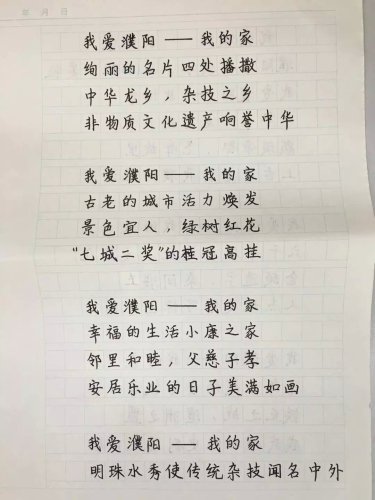 年 月 日
我爱濮阳——我的家
绚丽的名片四处播撒
中华龙乡，杂技之乡
非物质文化遗产响誉中华
我爱濮阳——我的家
古老的城市活力焕发
景色宜人，绿树红花
“七城二奖”的桂冠高挂
我爱濮阳——我的家
幸福的生活小康之家
邻里和睦，父慈子孝
安居乐业的日子美满如画
我爱濮阳——我的家
明珠水秀使传统杂技闻名中外